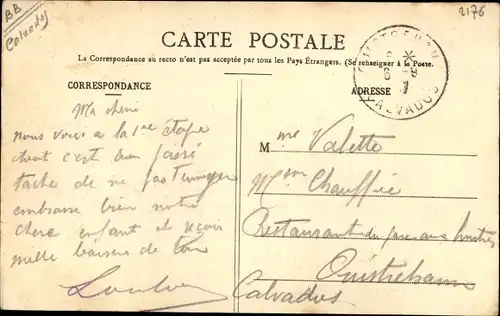 BB
Calvados
2176
CARTE POSTALE
La Correspondance au recto n'est pas acceptée par tous les Pays Étrangers. (Se renseigner à la Poste.
CORRESPONDANCE
ADRESSE
CALVADOS
Ma chérie
nous voici a la 1re étape
tout c'est bien passé
tache de ne pas t'ennuyer
embrasse bien notre
chere enfant et reçois
mille baisers de ton
Mme Valette
Mson Chauffrée
Restaurant du parc aux huitres
Ouistreham
Calvados